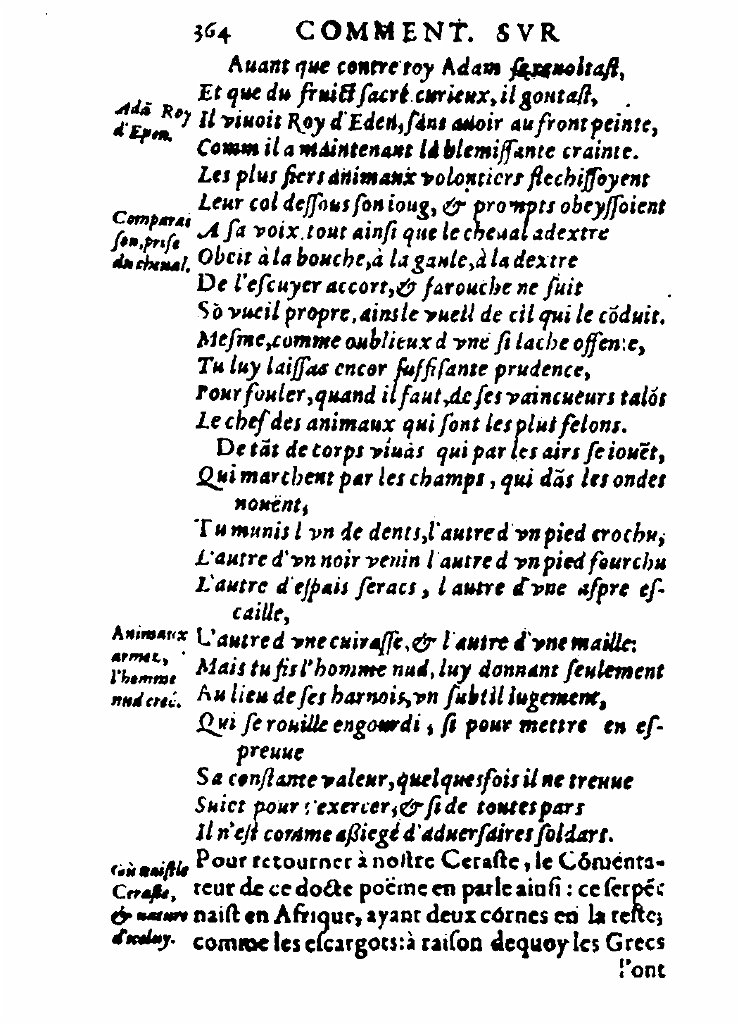 364 COMMENT. SVR
Auant que contre toy Adam se reuoltast,
Et que du fruict sacré curieux, il goutast,
Adã Roy
d'Eden.
Il viuoit Roy d'Eden, sans auoir au front peinte,
Comm il a maintenant la blemissante crainte.
Les plus fiers animaux volontiers flechissoyent
Leur col dessous son ioug, & prompts obeyssoient
Comparai
son, prise
du cheual.
A sa voix, tout ainsi que le cheual adextre
Obeit à la bouche, à la gaule, à la dextre
De l'escuyer accort, & farouche ne suit
Sõ vueil propre, ains le vueil de cil qui le cõduit.
Mesme, comme oublieux d vne si lache offense,
Tu luy laissas encor suffisante prudence,
Pour fouler, quand il faut, de ses vaincueurs talõs
Le chef des animaux qui sont les plus felons.
De tãt de corps viuãs qui par les airs se iouẽt,
Qui marchent par les champs, qui dãs les ondes
nouënt,
Tu munis l vn de dents, l'autre d vn pied crochu,
L'autre d'vn noir venin l autre d vn pied fourchu
L'autre d'espais feracs, l autre d'vne aspre es-
caille,
Animaux
armez,
l'homme
nud creé.
L'autre d vne cuirasse, & l'autre d'vne maille:
Mais tu fis l'homme nud, luy donnant seulement
Au lieu de ses harnois, vn subtil iugement,
Qui se rouille engourdi, si pour mettre en es-
preuue
Sa constante valeur, quelquesfois il ne treuue
Suiet pour s'exercer, & si de toutes pars
Il n'est comme aßiegé d'aduersaires soldars.
Où naist le
Ceraste,
& nature
d'iceluy.
Pour retourner à nostre Ceraste, le Cõmenta-
teur de ce docte poëme en parle ainsi: ce serpẽt
naist en Afrique, ayant deux cornes en la teste,
comme les escargots: à raison dequoy les Grecs
l'ont